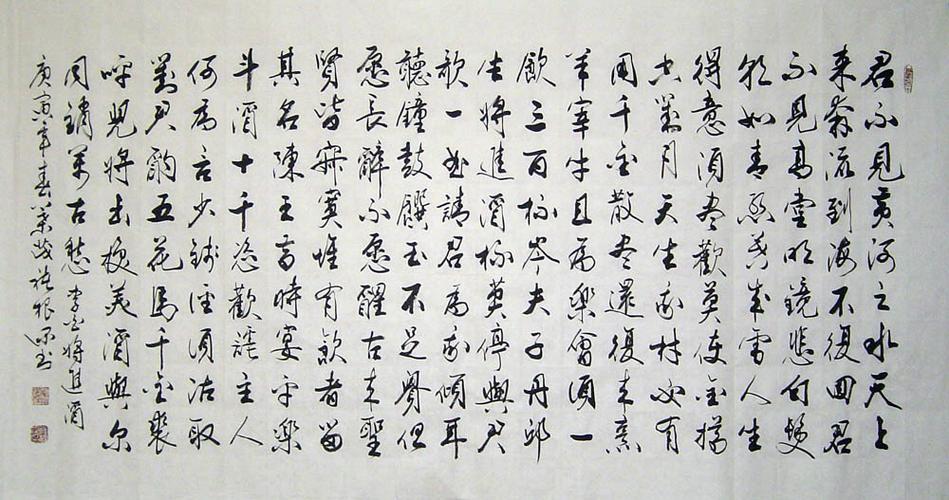 君不見黃河之水天上
来奔流到海不復回君
不見高堂明鏡悲白髮
朝如青絲暮成雪人生
得意須盡歡莫使金樽
空對月天生我材必有
用千金散盡還復来烹
羊宰牛且為樂會須一
飲三百杯岑夫子丹邱
生將進酒杯莫停與君
歌一曲請君為我傾耳
聽鐘鼓饌玉不足貴但
愿長醉不愿醒古来聖
賢皆寂寞惟有飲者留
其名陳王昔時宴平樂
斗酒十千恣歡謔主人
何為言少錢徑須沽取
對君酌五花馬千金裘
呼兒將出換美酒與尔
同銷萬古愁 李白將進酒
庚寅年春 根深书